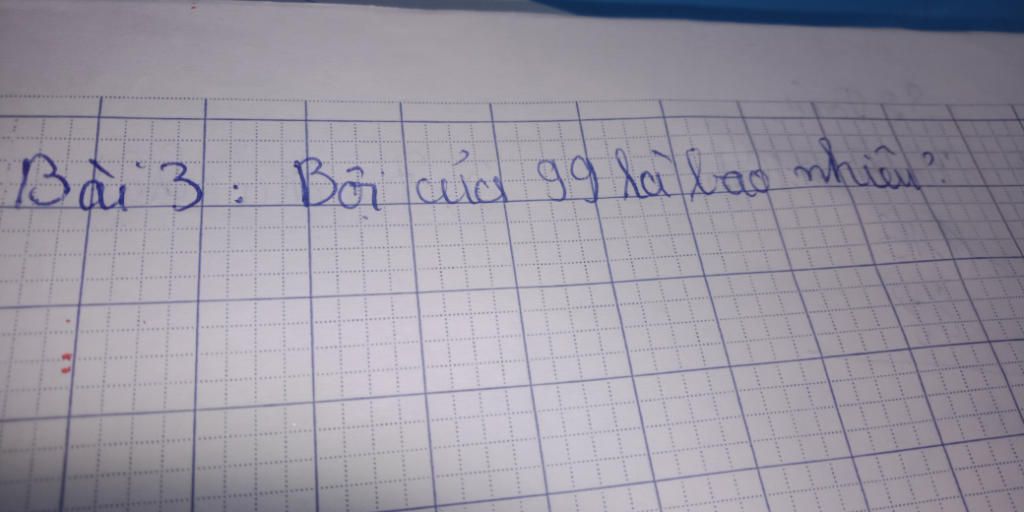 Bài 3 : Bội của 99 là bao nhiêu?